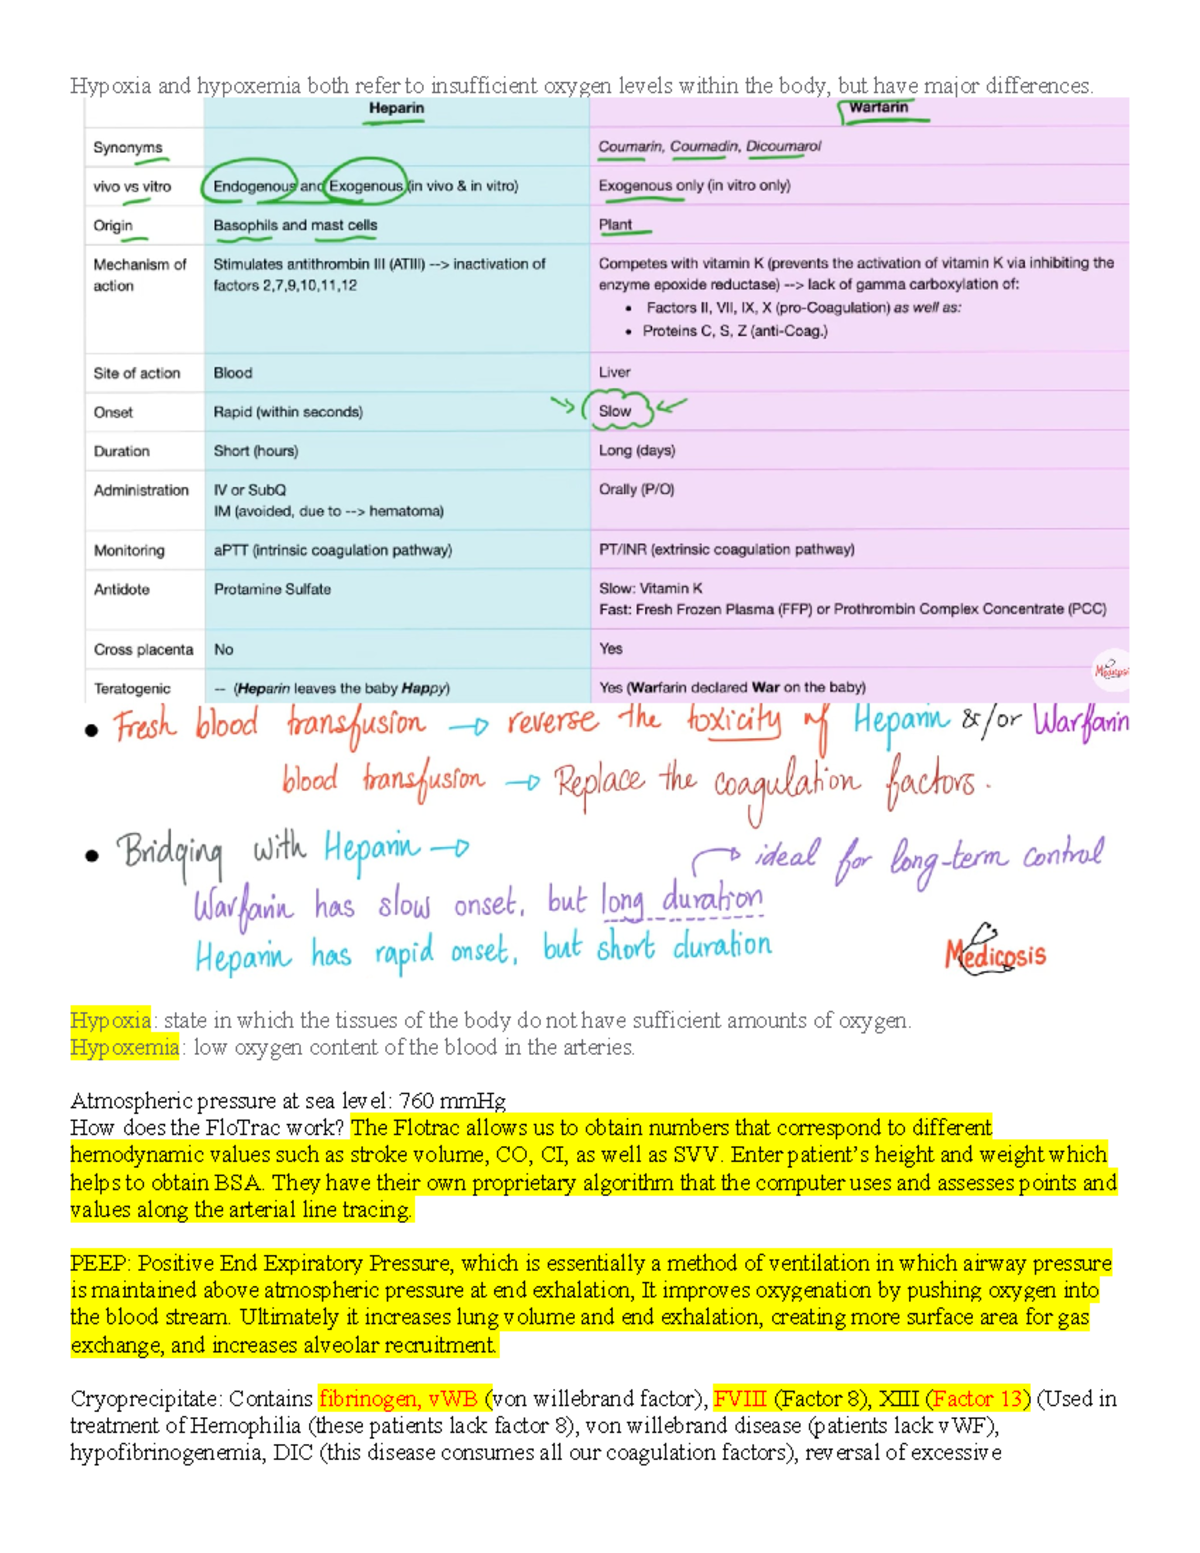 Hypoxia and hypoxemia both refer to insufficient oxygen levels within the body, but have major differences.
Heparin Warfarin
Synonyms Coumarin, Coumadin, Dicoumarol
vivo vs vitro Endogenous and Exogenous (in vivo & in vitro) Exogenous only (in vitro only)
Origin Basophils and mast cells Plant
Mechanism of action Stimulates antithrombin III (ATIII) --> inactivation of factors 2,7,9,10,11,12
Competes with vitamin K (prevents the activation of vitamin K via inhibiting the
enzyme epoxide reductase) --> lack of gamma carboxylation of:
• Factors II, VII, IX, X (pro-Coagulation) as well as:
• Proteins C, S, Z (anti-Coag.)
Site of action Blood Liver
Onset Rapid (within seconds) Slow
Duration Short (hours) Long (days)
Administration IV or SubQ Orally (P/O)
IM (avoided, due to --> hematoma)
Monitoring aPTT (intrinsic coagulation pathway) PT/INR (extrinsic coagulation pathway)
Antidote Protamine Sulfate Slow: Vitamin K
Fast: Fresh Frozen Plasma (FFP) or Prothrombin Complex Concentrate (PCC)
Cross placenta No Yes
Teratogenic -- (Heparin leaves the baby Happy) Yes (Warfarin declared War on the baby)
• Fresh blood transfusion → reverse the toxicity of Heparin &/or Warfarin
blood transfusion → Replace the coagulation factors.
• Bridging with Heparin →
ideal for long-term control
Warfarin has slow onset, but long duration
Heparin has rapid onset, but short duration
Medicosis
Hypoxia: state in which the tissues of the body do not have sufficient amounts of oxygen.
Hypoxemia: low oxygen content of the blood in the arteries.
Atmospheric pressure at sea level: 760 mmHg
How does the FloTrac work? The Flotrac allows us to obtain numbers that correspond to different
hemodynamic values such as stroke volume, CO, CI, as well as SVV. Enter patient's height and weight which
helps to obtain BSA. They have their own proprietary algorithm that the computer uses and assesses points and
values along the arterial line tracing.
PEEP: Positive End Expiratory Pressure, which is essentially a method of ventilation in which airway pressure
is maintained above atmospheric pressure at end exhalation, It improves oxygenation by pushing oxygen into
the blood stream. Ultimately it increases lung volume and end exhalation, creating more surface area for gas
exchange, and increases alveolar recruitment.
Cryoprecipitate: Contains fibrinogen, vWB (von willebrand factor), FVIII (Factor 8), XIII (Factor 13) (Used in
treatment of Hemophilia (these patients lack factor 8), von willebrand disease (patients lack vWF),
hypofibrinogenemia, DIC (this disease consumes all our coagulation factors), reversal of excessive